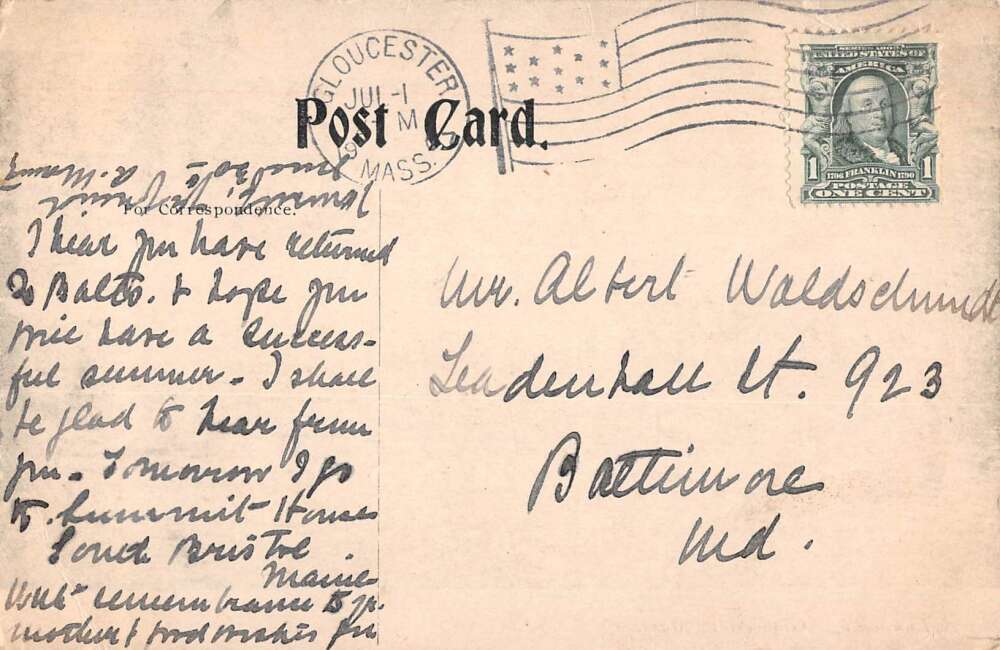 GLOUCESTER
JUL -1
MASS.
Post Card.
SERIES 1902
UNITED STATES OF
AMERICA
1 1
1706 FRANKLIN 1790
POSTAGE
ONE CENT
For Correspondence.
I hear you have returned
to Balto. & hope you
will have a success-
ful summer - I shall
be glad to hear from
you. Tomorrow I go
to Summit House
South Bristol.
Maine
With remembrance to yr.
mother & good wishes for
yourself, yr friend
June 30
Mr. Albert Waldschmidt
Leadenhall St. 923
Baltimore
Md.